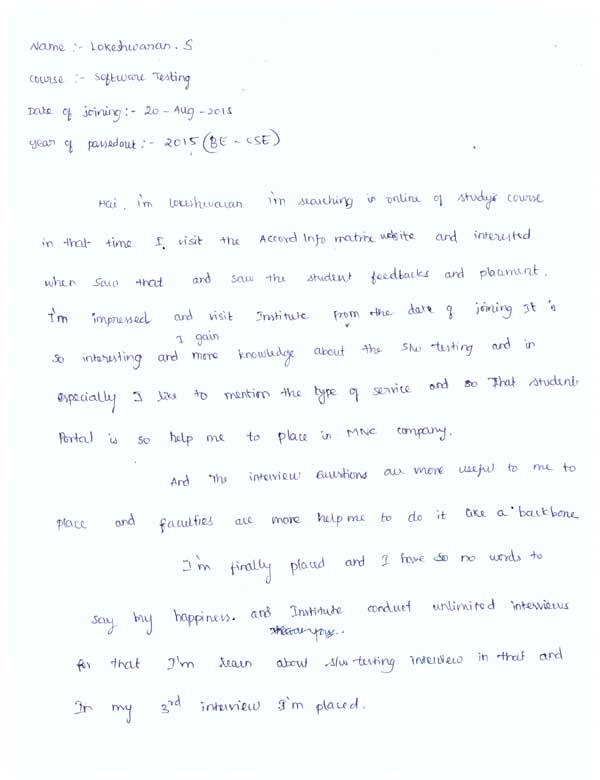 Name :- Lokeshwaran. S
course :- Software Testing
Date of joining :- 20 - Aug - 2015
year of passedout :- 2015 (BE - CSE)
Hai, i'm lokeshwaran i'm searching in online of study's course
in that time I visit the Accord Info matrix website and interested
when saw that and saw the student feedbacks and placment.
I'm impressed and visit Institute from the date of joining It is
so interesting and I gain more knowledge about the S/w testing and in
especially I like to mention the type of service and so that student
Portal is so help me to place in MNC company.
And The interview Questions are more useful to me to
place and faculties are more help me to do it like a backbone
I'm finally placed and I have so no words to
say my happiness. and Institute conduct unlimited interviews
for that I'm learn about s/w testing interview in that and
In my 3rd interview I'm placed.